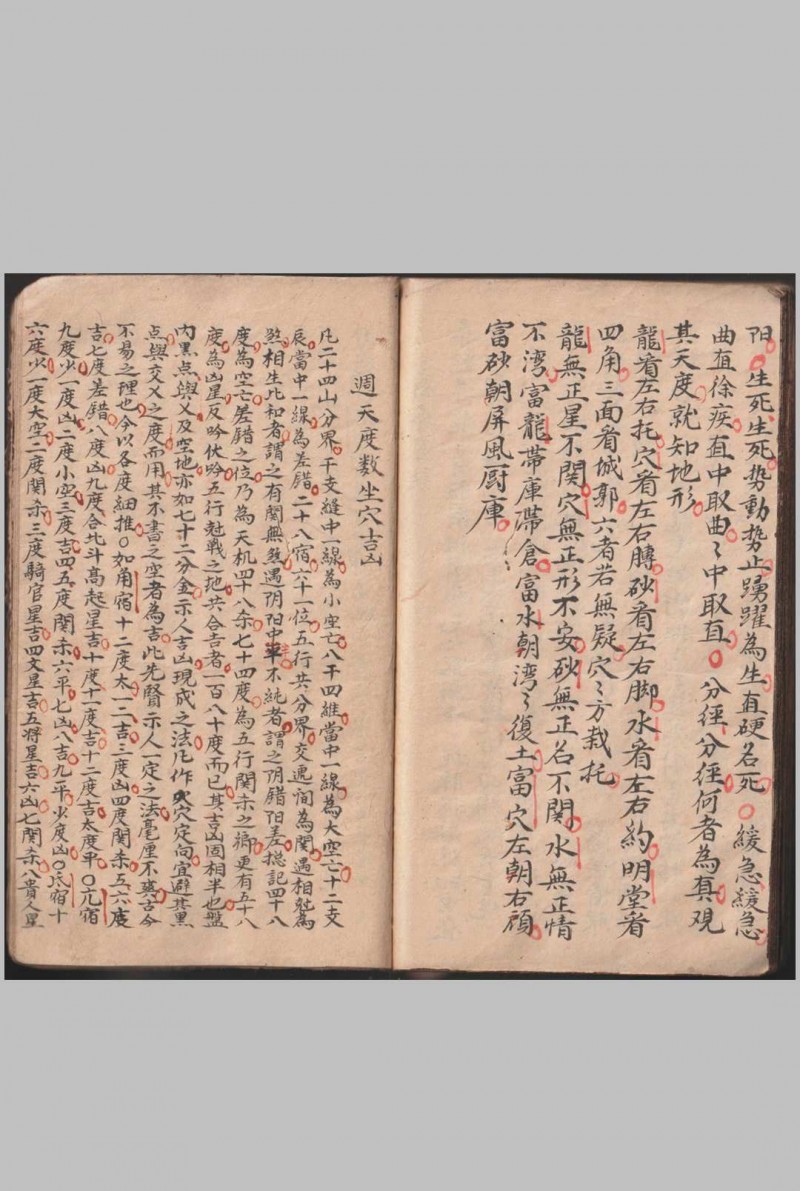 阳生死生死势動势止踴躍為生直硬名死緩急緩急
曲直徐疾直中取曲〻中取直分徑分徑何者為真观
其天度就知地形
龍看左右托穴看左右膊砂看左右脚水看左右約明堂看
四角三面看城郭六者若無疑穴〻方栽托
龍無正星不関穴無正形不安砂無正名不関水無正情
不湾富龍帶庫帶倉富水朝湾〻復土富穴左朝右顧
富砂朝屏風厨庫
週天度数坐穴吉凶
凡二十四山分界干支縫中一線為小空亡八干四維當中一線為大空亡十二支
辰當中一線為差錯二十八宿六十一位五行共分界交逸间為関遇相尅為
煞相生比和者謂之有関無煞遇阴阳中不純者謂之阴錯阳差總記四十八
度為空亡差錯之位乃為天机四十八杀七十四度為五行関杀之禍更有五十八
度為凶星反吟伏吟五行尅戰之地共合吉者一百八十度而已其吉凶固相半也盤
内黑点與乂及空地亦如七十二分金示人吉凶現成之法凡作穴定向宜避其黑
点與交乂之度而用其不書之空者為吉此先賢示人一定之法毫厘不爽古今
不易之理也今以各度細推如角宿十二度太一二吉三度凶四度関杀五六度
吉七度差錯八度凶九度合北斗高起星吉十度十一度吉十二度吉太度平亢宿
九度少一度凶二度小空三度吉四五度関杀六平七凶八吉九平少度凶氐宿十
六度少一度大空二度関杀三度騎官星吉四文星吉五将星吉六凶七関杀八貴人星